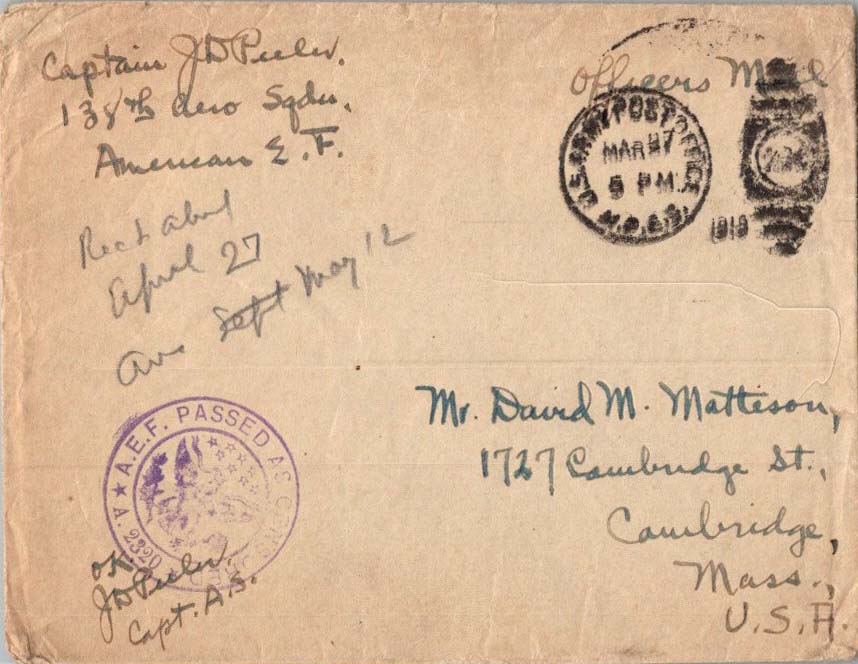 Captain J D Peeler.
138th Aero Sqdn.
American E. F.
Officers Mail
U.S. ARMY POST OFFICE
MAR 27
5 PM
M.P.E.S.
1919
Recd abnl
April 27
Ans Sept May 12
Mr. David M. Matteson,
1727 Cambridge St.,
Cambridge,
Mass.,
U. S. A.
A.E.F. PASSED AS CENSORED
A. 2320
OK.
J D Peeler.
Capt. A.S.